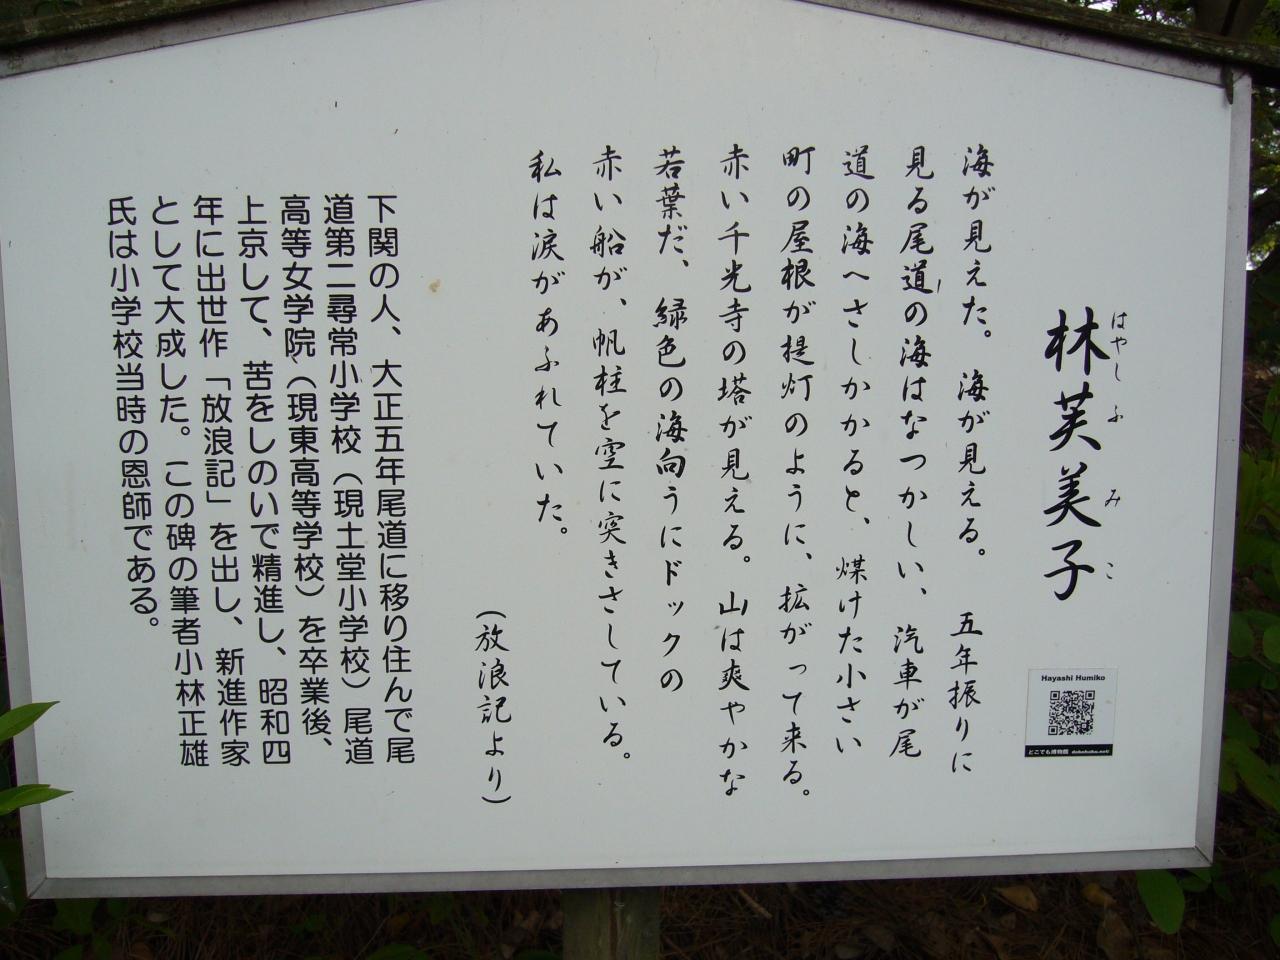 林芙美子
はやしふみこ
海が見えた。海が見える。五年振りに
見る尾道の海はなつかしい、汽車が尾
道の海へさしかかると、煤けた小さい
町の屋根が提灯のように、拡がって来る。
赤い千光寺の塔が見える。山は爽やかな
若葉だ、緑色の海向うにドックの
赤い船が、帆柱を空に突きさしている。
私は涙があふれていた。
(放浪記より)
下関の人、大正五年尾道に移り住んで尾
道第二尋常小学校(現土堂小学校)尾道
高等女学院(現東高等学校)を卒業後、
上京して、苦をしのいで精進し、昭和四
年に出世作「放浪記」を出し、新進作家
として大成した。この碑の筆者小林正雄
氏は小学校当時の恩師である。
Hayashi Humiko
どこでも博物館 dokohaku.net/